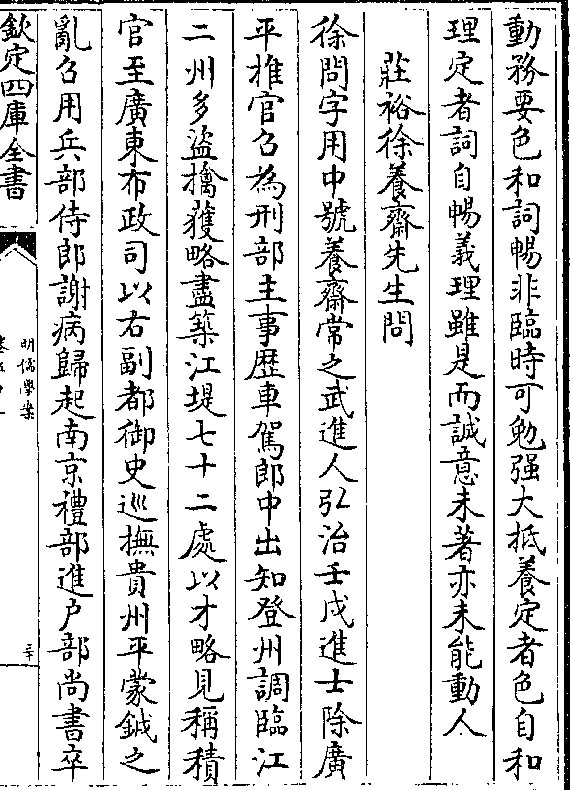 動務要色和詞暢非臨時可勉强大抵養定者色自和
理定者詞自暢義理雖是而誠意未著亦未能動人
莊裕徐養齋先生問
徐問字用中號養齋常之武進人弘治壬戌進士除廣
平推官召為刑部主事歴車駕郎中出知登州調臨江
二州多盜擒獲略盡築江堤七十二處以才略見稱積
官至廣東布政司以右副都御史巡撫貴州平蒙鉞之
亂召用兵部侍郎謝病歸起南京禮部進户部尚書卒
欽定四庫全書
明儒學案